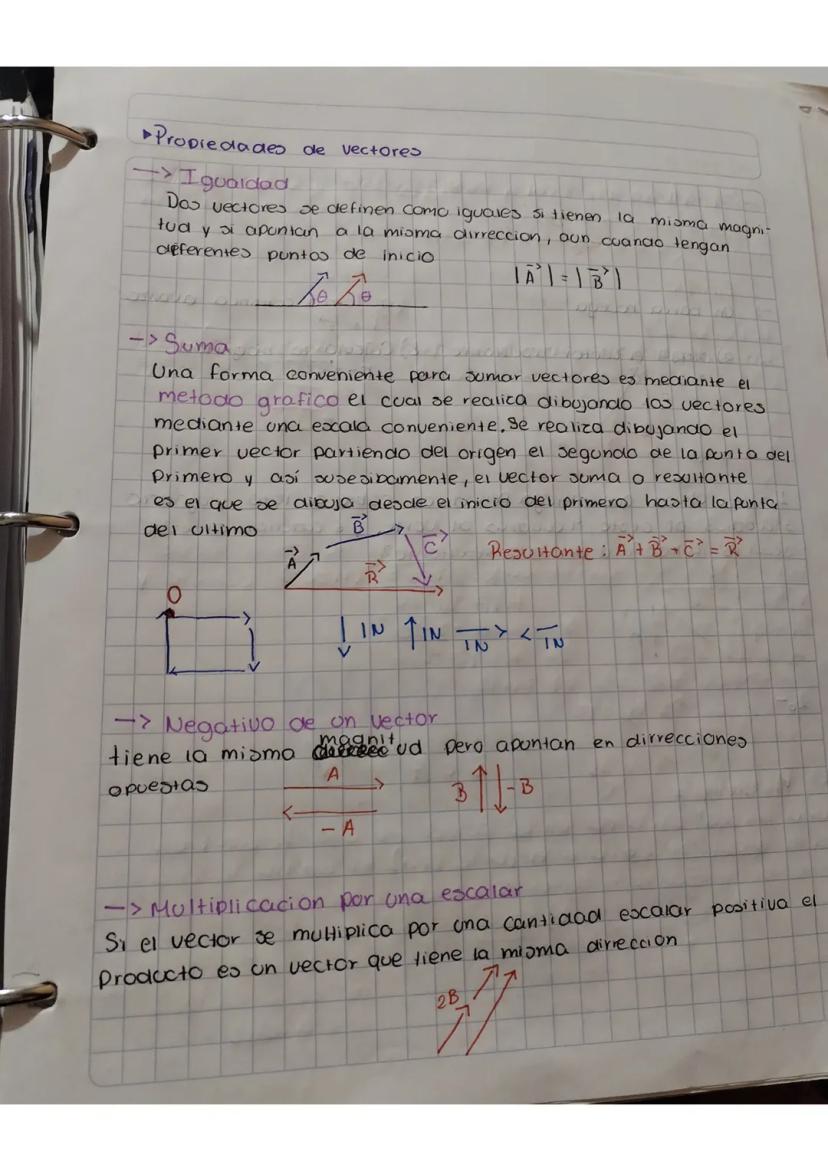 ▸Propiedades de vectores
--> Igualdad
Dos vectores se definen como iguales si tienen la misma magni-
tud y si apuntan a la misma dirreccion, aun cuando tengan
diferentes puntos de inicio
|A⃗| = |B⃗|
θ θ
--> Suma
Una forma conveniente para sumar vectores es mediante el
metodo grafico el cual se realica dibujando los vectores
mediante una escala conveniente. Se realiza dibujando el
primer vector partiendo del origen el segundo de la punta del
primero y así susesibamente, el vector suma o resultante
es el que se dibuja desde el inicio del primero hasta la punta
del ultimo
A⃗ B⃗ C⃗ R⃗
Resultante: A⃗ + B⃗ + C⃗ = R⃗
O
1N 1N 1N 1N
--> Negativo de un vector
tiene la misma magnitud pero apuntan en dirrecciones
opuestas
A B -B
- A
--> Multiplicacion por una escalar
Si el vector se multiplica por una cantidad escalar positiva el
producto es un vector que tiene la misma dirreccion
2B